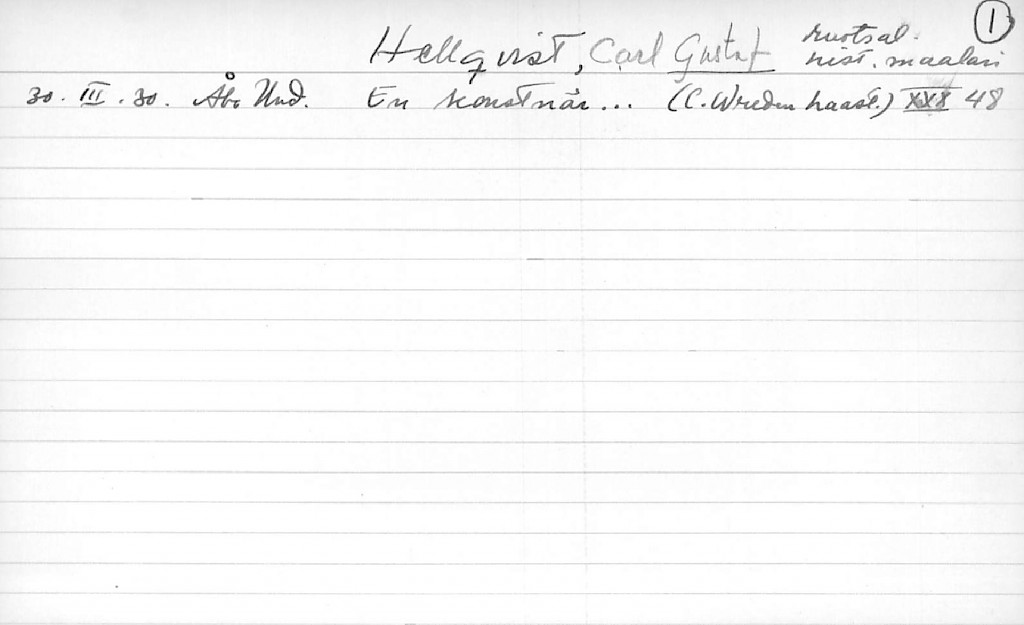 Hellqvist, Carl Gustaf ruotsal. hist. maalari 1
30. III. 30. Åbo Und. En konstnär... (C. Wreden haast.) XXX 48